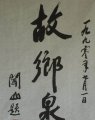 一九九〇年七月一日
故鄉泉
閻山題